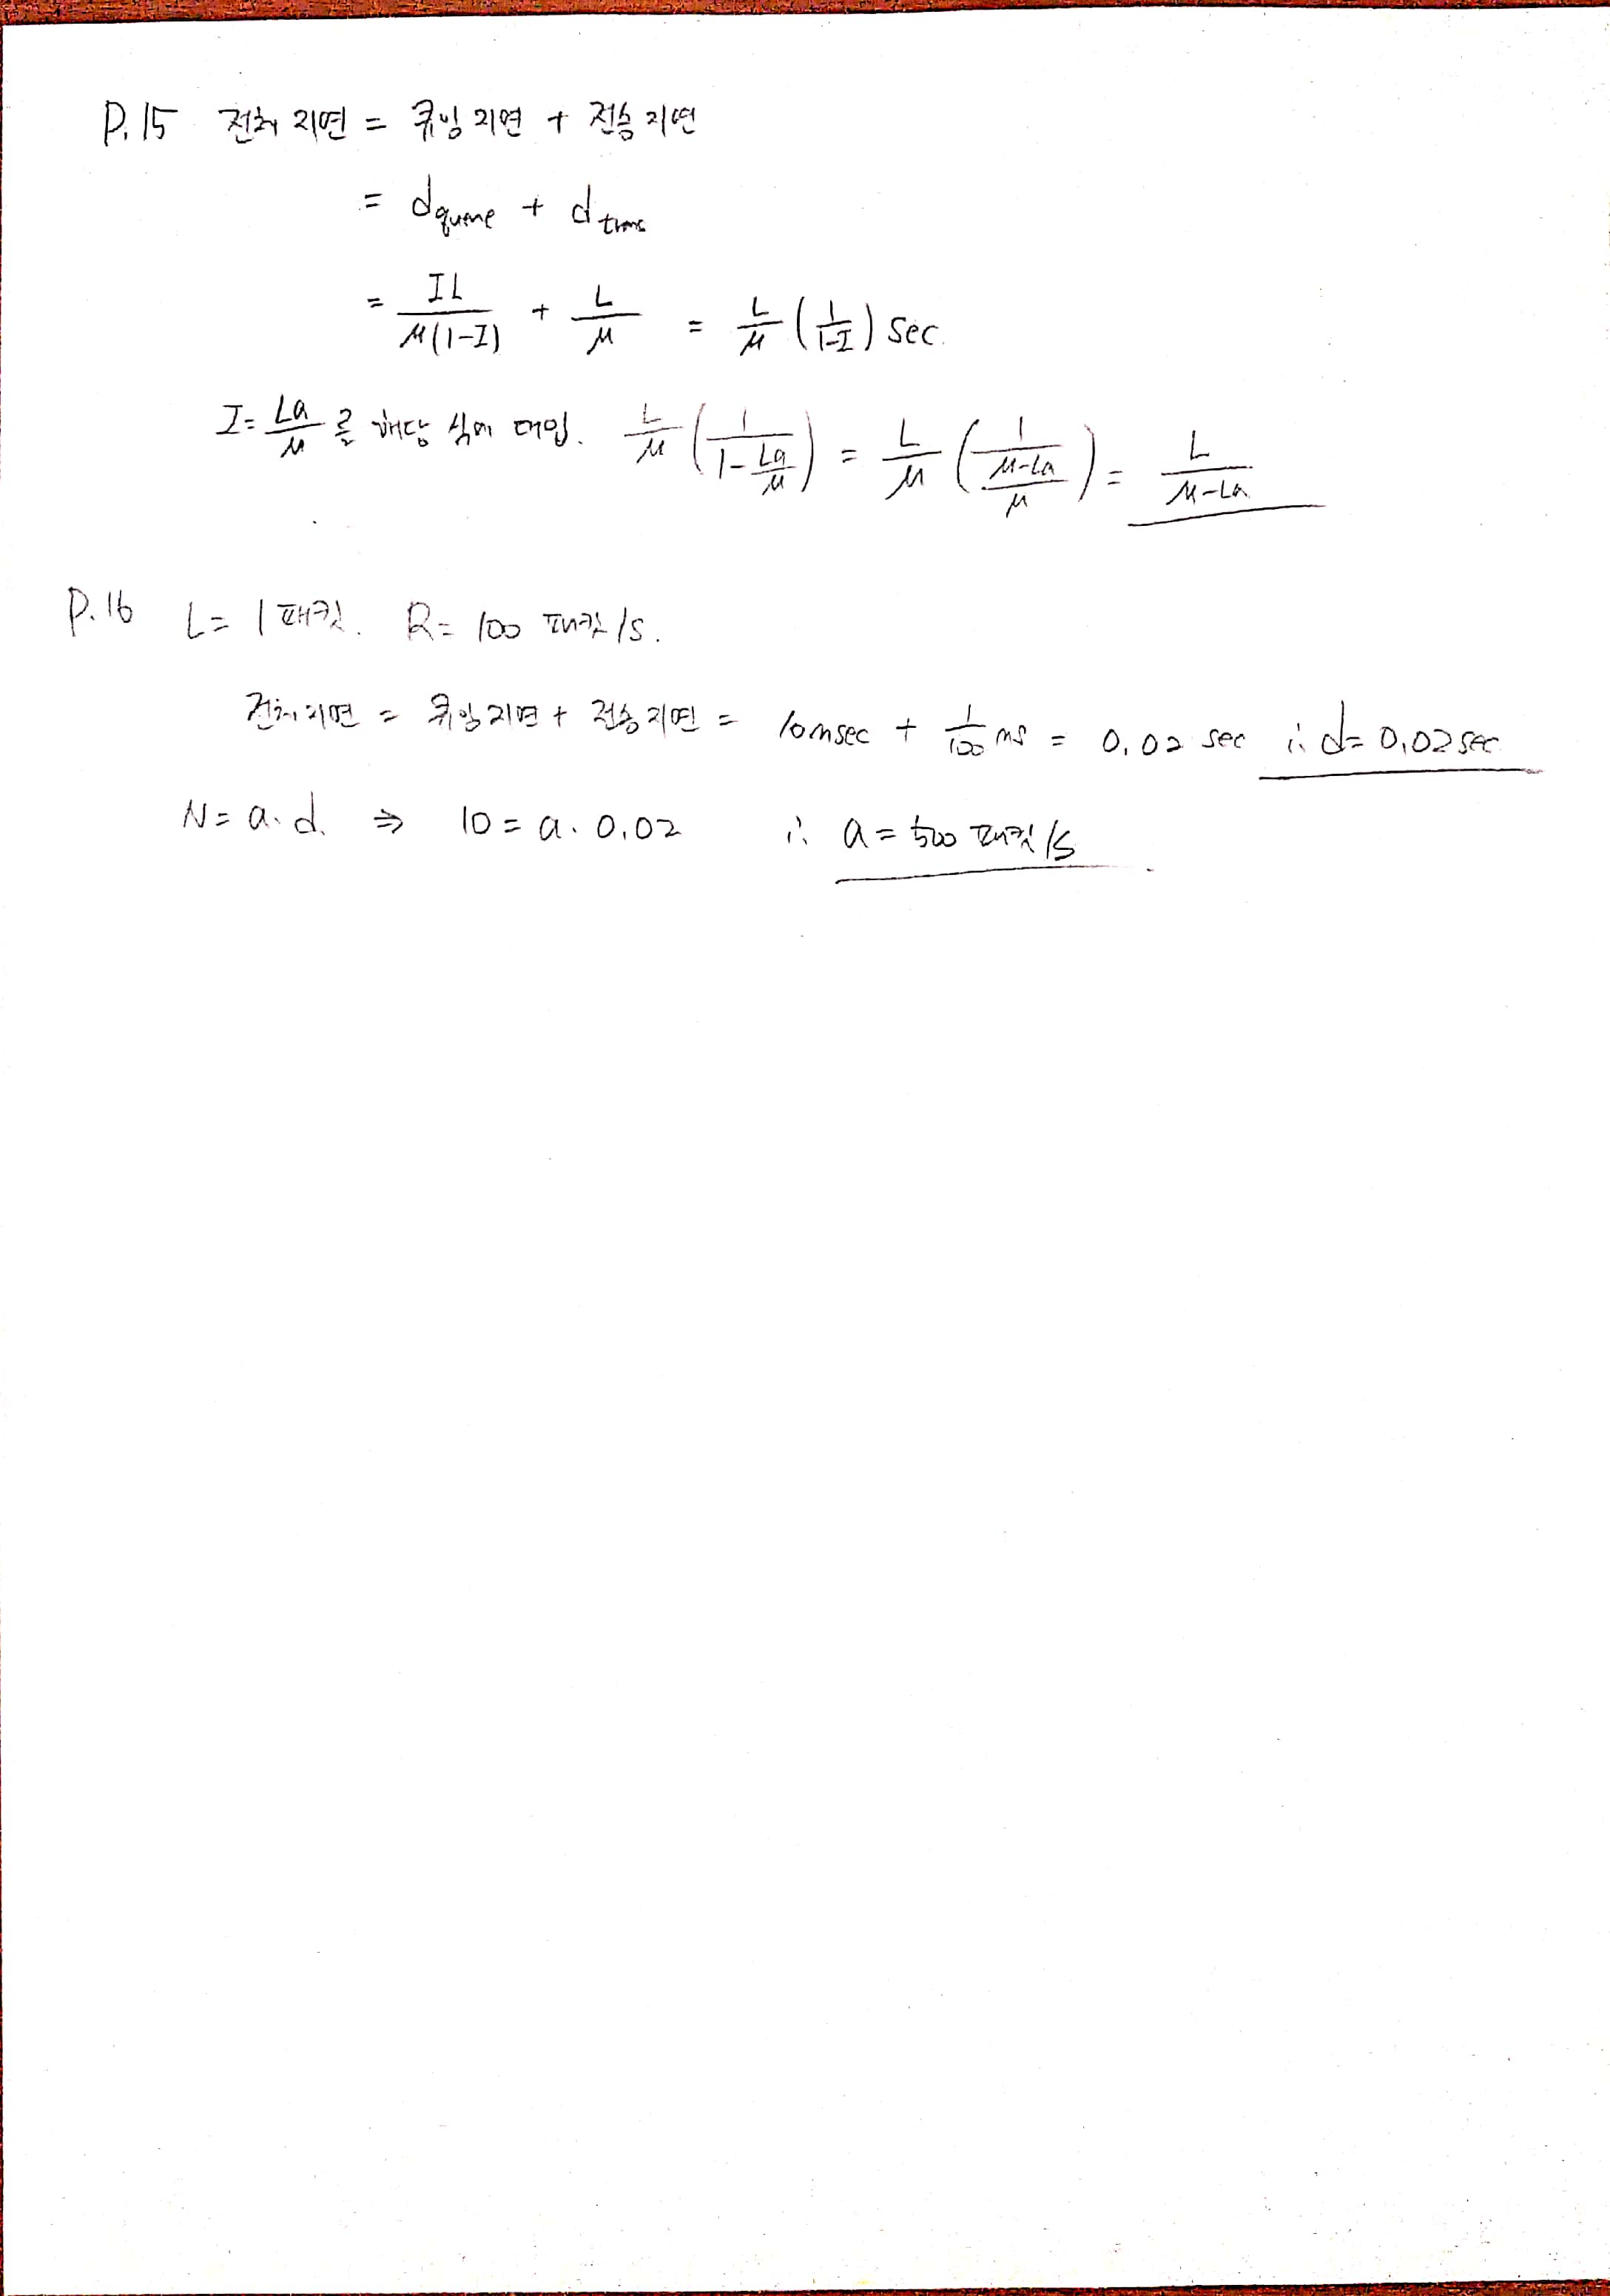 P.15 전체 지연 = 큐잉 지연 + 전송 지연
= d queue + d trans
= IL / μ(1-I) + L/μ = L/μ (1/1-I) sec.
I = La/μ 를 해당 식에 대입. L/μ (1 / 1 - La/μ) = L/μ (1 / μ-La/μ) = L / μ-La
P.16 L = 1 패킷. R = 100 패킷/s.
전체 지연 = 큐잉 지연 + 전송 지연 = 10msec + 1/100 ms = 0.02 sec ∴ d = 0.02 sec
N = a · d. ⇒ 10 = a · 0.02 ∴ a = 500 패킷/s